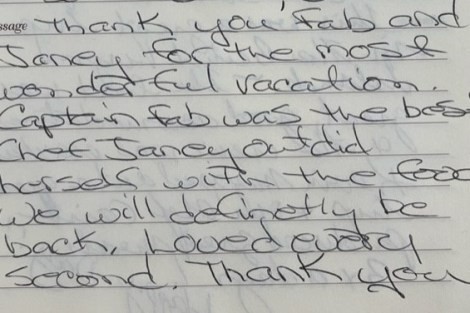 ssage Thank you Fab and
Janey for the most
wonderful vacation.
Captain Fab was the bes
Chef Janey outdid
herself with the foo
We will definetly be
back, Loved every
second. Thank you